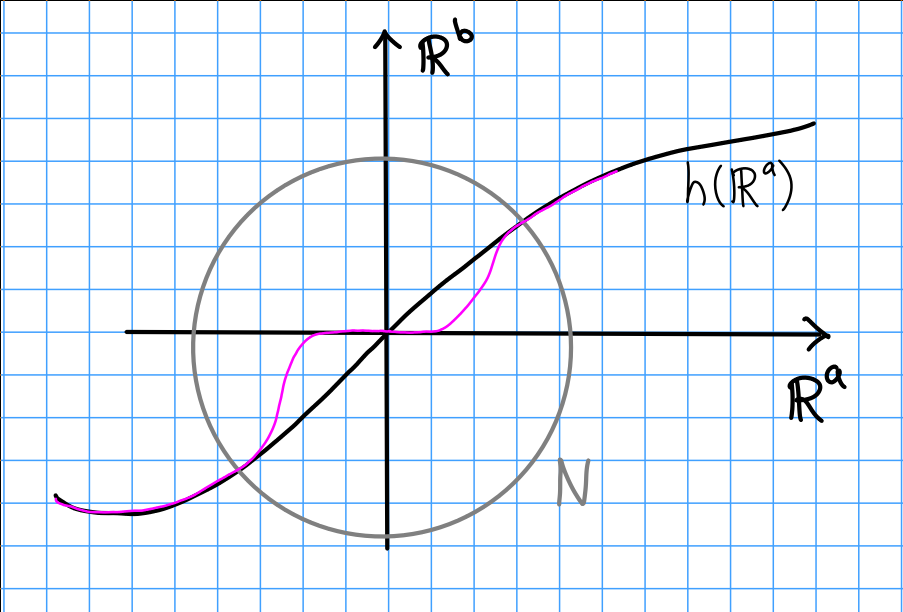 ℝᵇ
h(ℝᵃ)
ℝᵃ
N